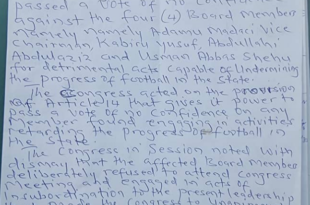 passed a vote of no confidence
against the four (4) Board Member
namely namely Adamu Madari Vice
Chairman, Kabiru Yusuf, Abdullahi
Abdulaziz and Usman Abbas Shehu
for detrimental acts capable of Undermining
the progress of football in the state.
The Congress acted on the provision
of Article 14 that gives it power to
pass a vote of no confidence on any
member found engaging in activities
retarding the progress of football in
the state.
The Congress in Session noted with
dismay that the affected Board Member
deliberately refused to attend congress
Meeting and engaged in acts of
insubordination to the present leadership
made the Congress to